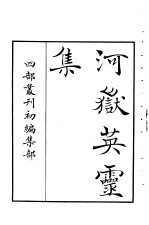 河嶽英靈
集
四部叢刊初編集部